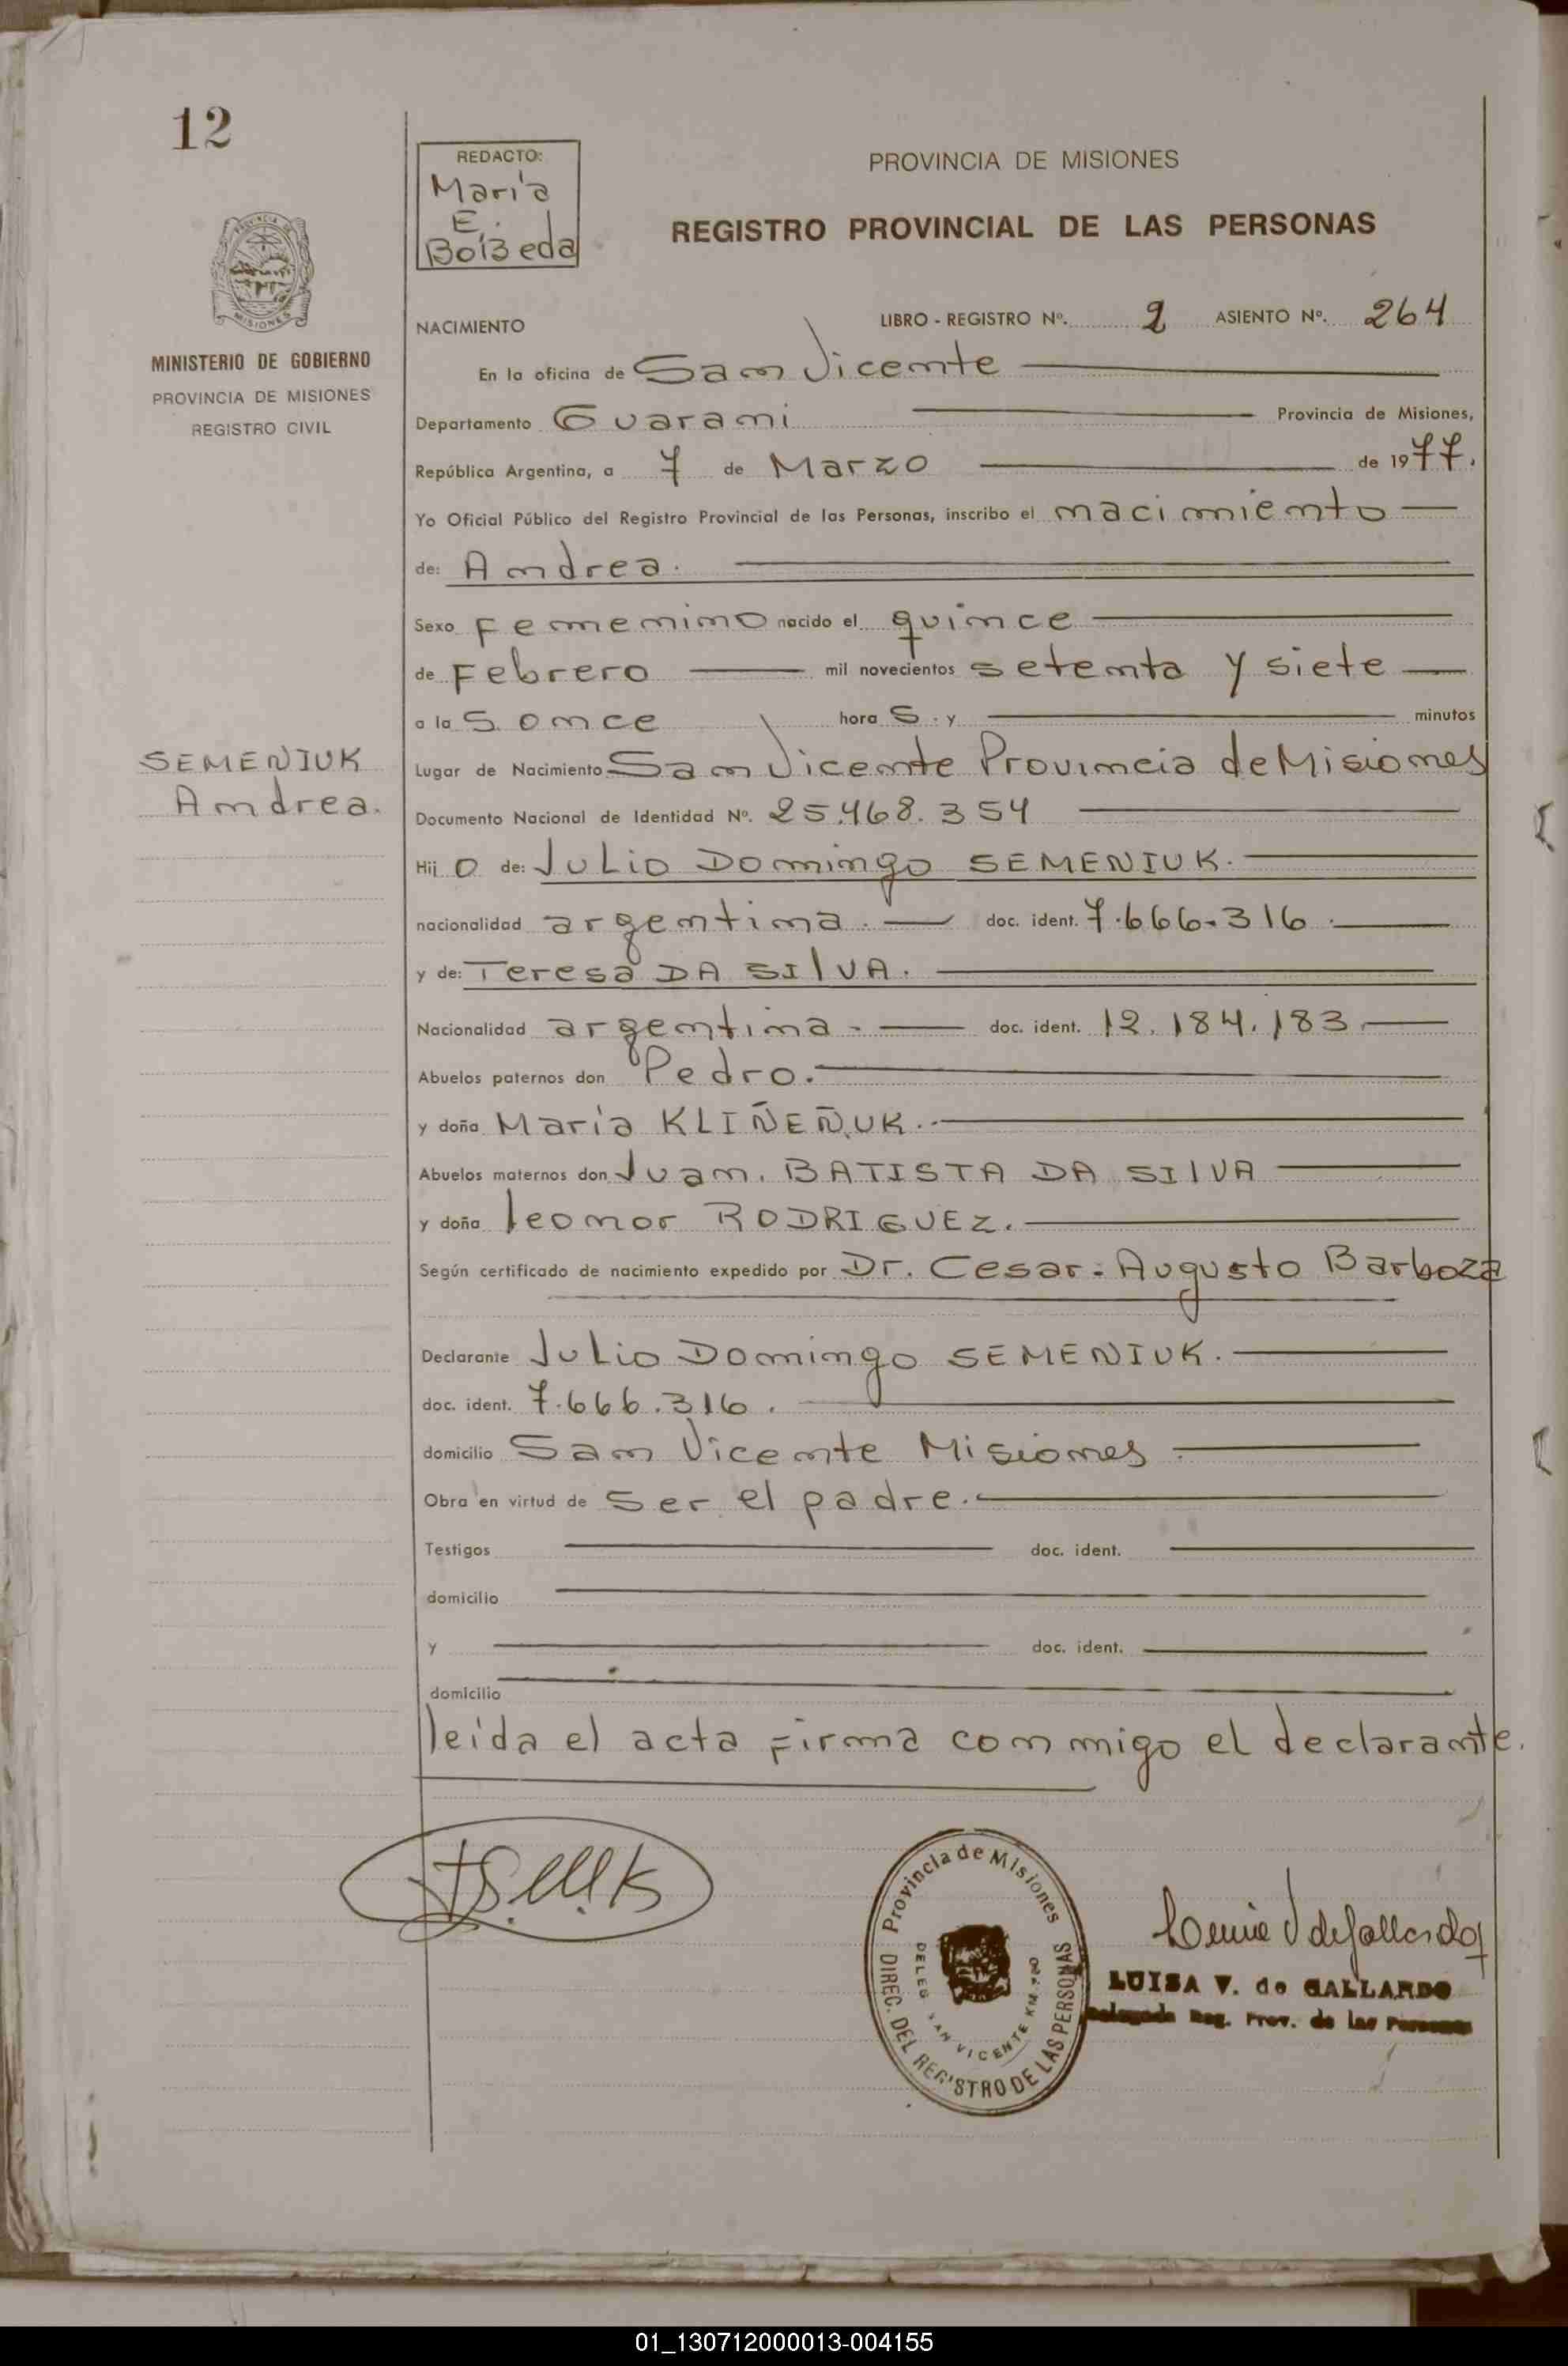 12
REDACTO:
María
E.
Boíβeda
PROVINCIA DE MISIONES
REGISTRO PROVINCIAL DE LAS PERSONAS
MINISTERIO DE GOBIERNO
PROVINCIA DE MISIONES
REGISTRO CIVIL
NACIMIENTO LIBRO - REGISTRO Nº. 2 ASIENTO Nº. 264
En la oficina de San Vicente
Departamento Guarani Provincia de Misiones,
República Argentina, a 7 de Marzo de 1977.
Yo Oficial Público del Registro Provincial de las Personas, inscribo el nacimiento
de: Andrea.
Sexo Femenino nacido el quince
de Febrero mil novecientos setenta y siete
a las once horas. y minutos
SEMENIUK
Andrea.
Lugar de Nacimiento San Vicente Provincia de Misiones
Documento Nacional de Identidad Nº. 25.468.354
Hijo de: Julio Domingo SEMENIUK.
nacionalidad argentina. doc. ident. 7.666.316.
y de: Teresa DA SILVA.
Nacionalidad argentina. doc. ident. 12.184.183
Abuelos paternos don Pedro.
y doña María KLIÑEÑUK.
Abuelos maternos don Juan. BATISTA DA SILVA
y doña leonor RODRIGUEZ.
Según certificado de nacimiento expedido por Dr. Cesar. Augusto Barboza
Declarante Julio Domingo SEMENIUK.
doc. ident. 7.666.316.
domicilio San Vicente Misiones.
Obra en virtud de Ser el padre.
Testigos doc. ident.
domicilio
y doc. ident.
domicilio
leída el acta firma conmigo el declarante.
Provincia de Misiones
DIREC. DEL REGISTRO DE LAS PERSONAS
DELEG SAN VICENTE KM.
LUISA V. de GALLARDO
Delegada Reg. Prov. de las Personas
01_130712000013-004155